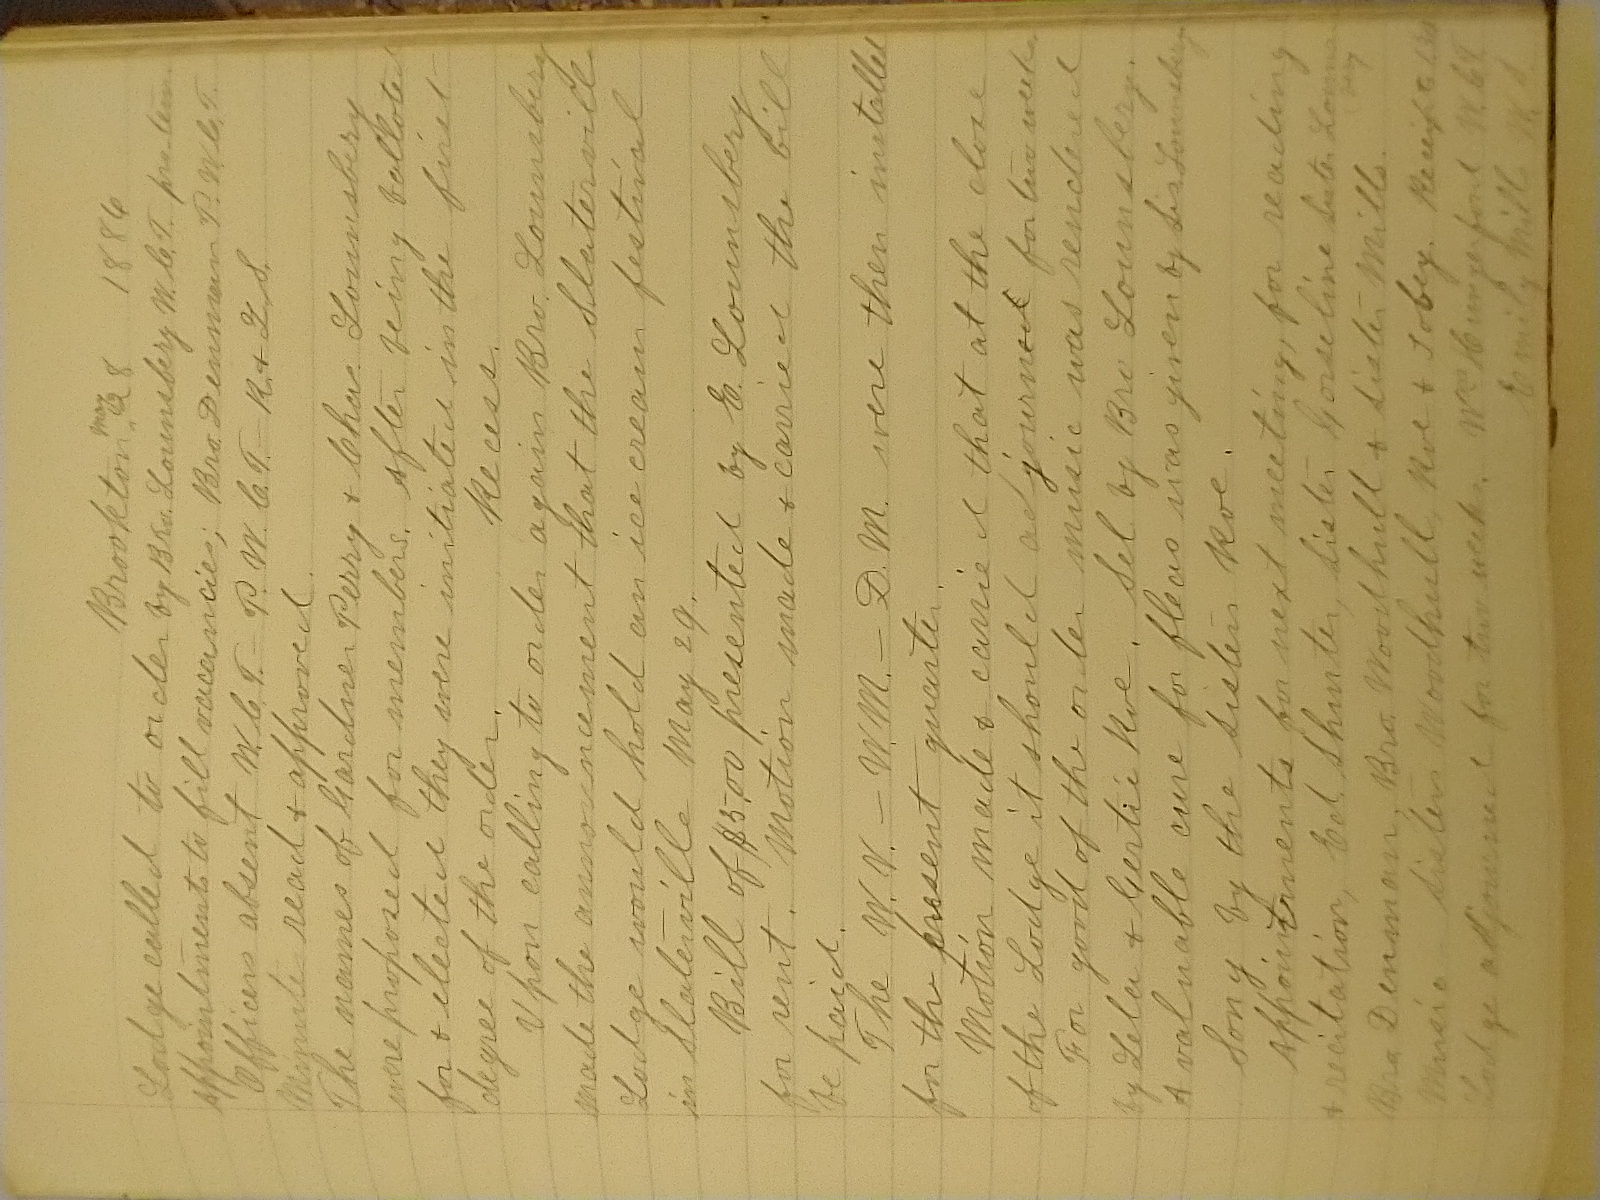 Brookton May 28 1886
Lodge called to order by Bro. Lounsbery W.C.T. pro-tem.
Appointments to fill vacancies; Bro. Denman P.W.C.T.
Officers absent W.C.T. – P.W.C.T. – R. & L.S.
Minutes read & approved.
The names of Gardner Perry & Chas. Lounsbery
were proposed for members. After being balloted
for & elected they were initiated in the first
degree of the order. Recess.
Upon calling to order again Bro. Lounsbery
made the announcement that the Slaterville
Lodge would hold an ice cream festival
in Slaterville May 29.
Bill of $5,00 presented by E. Lounsbery
for rent. Motion made & carried the bill
be paid.
The W.V. – W.M. – D.M. were then installed
for the present quarter.
Motion made & carried that at the close
of the Lodge it should adjourned for two weeks.
For good of the order music was rendered
by Lela & Gertie Roe. Sel by Bro Lounsbery.
A valuable cure for fleas was given by Sis. Lounsbery
Song by the Sisters Roe.
Appointments for next meeting, for reading
& recitation, Ed. Shurter, Sister Gorseline Sister Lounsbery
Bro Denman, Bro. Woodhull & Sister Mills.
Music Sisters Woodhull, Roe & Tobey. Receipts
Lodge adjourned for two weeks. Wm Hungerford W.C.T.
Emily Mills W.S.